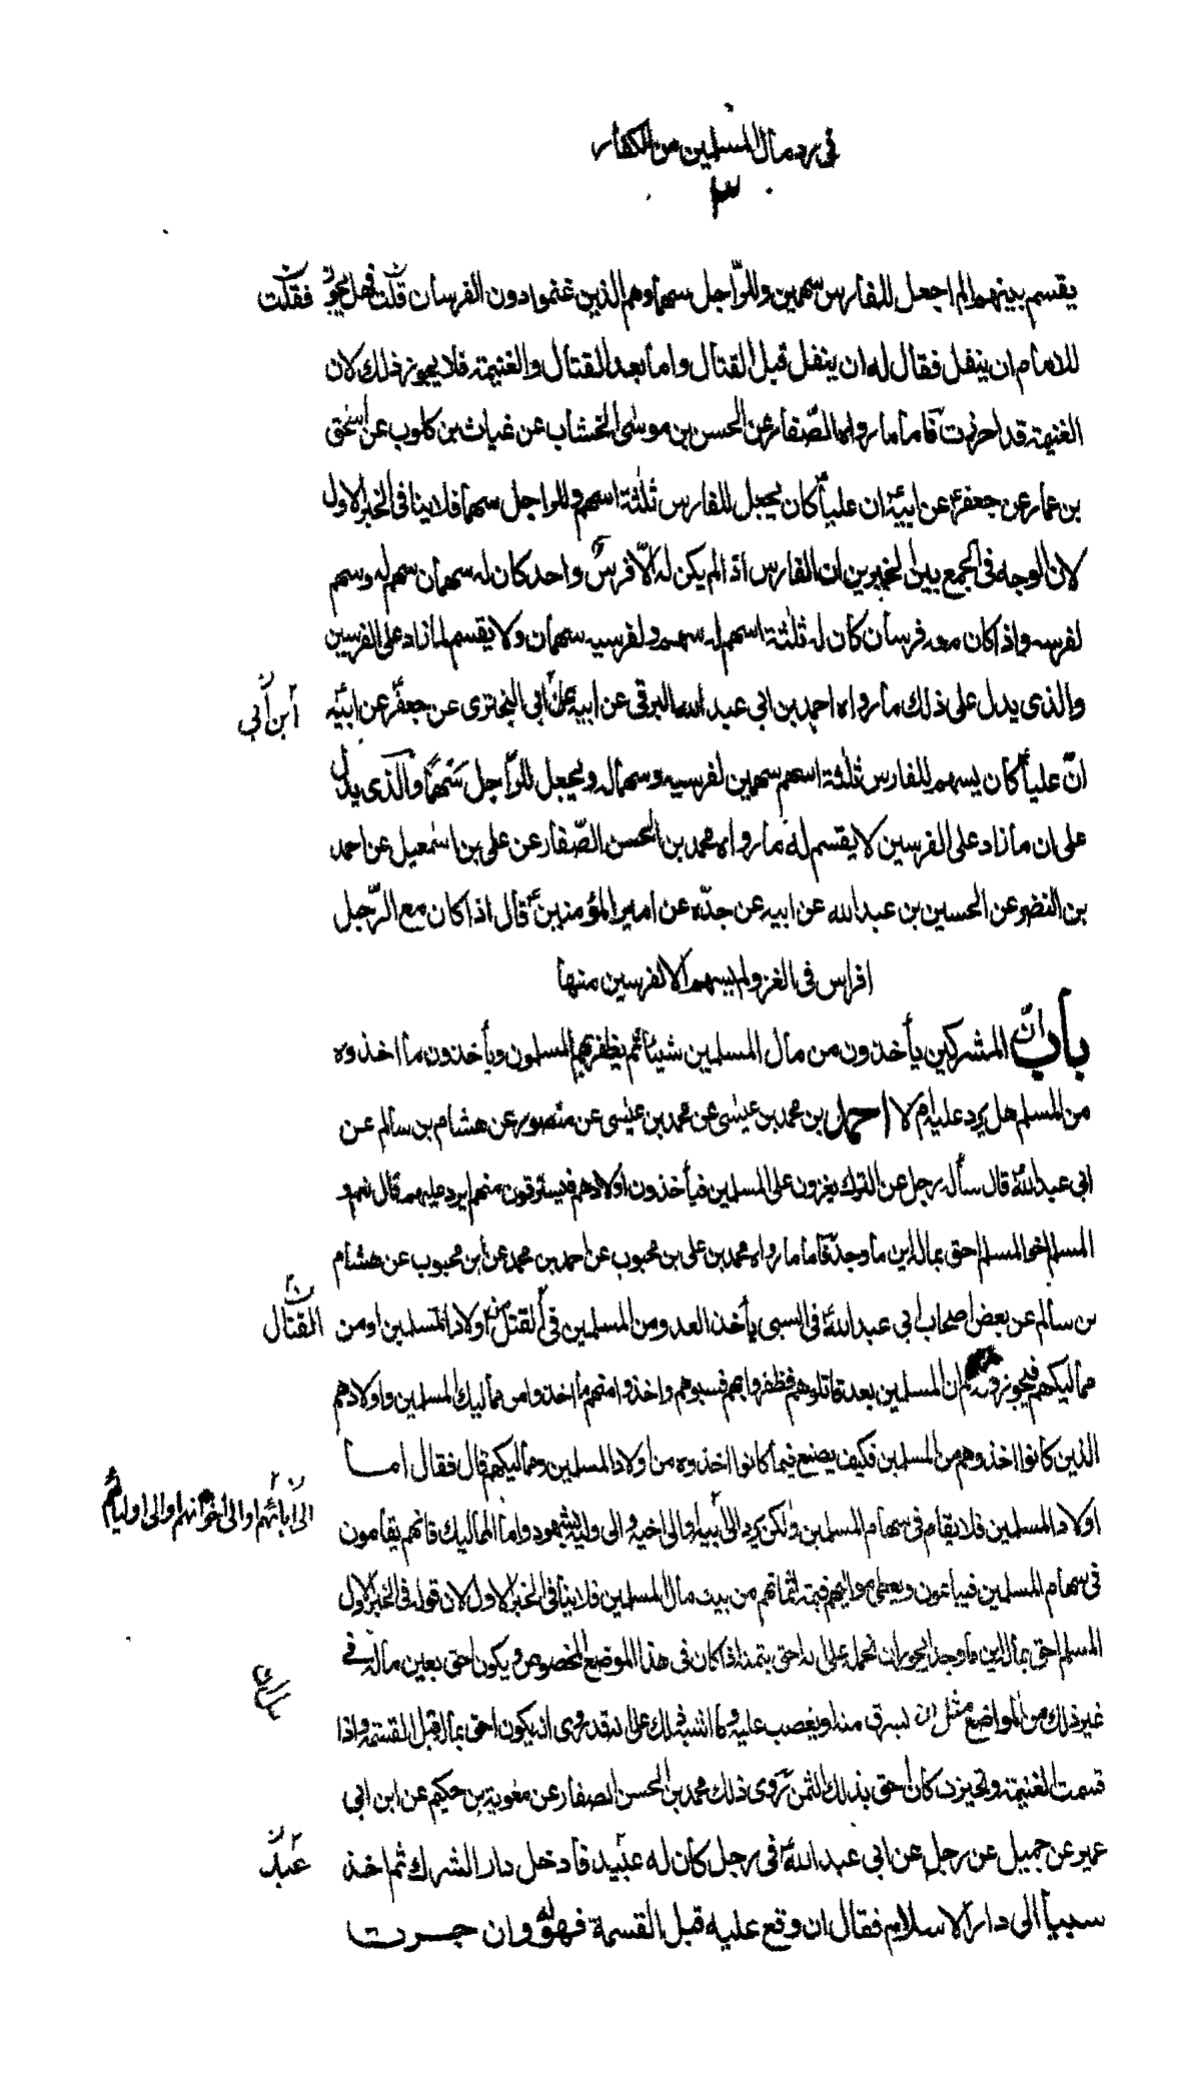 في رد مال المسلمين من الكفار
٣
يقسم بينهم الم اجعل للفارس سهمين وللرّاجل سهما وهم الذين غنموا دون الفرسان قلت فهل يجوز فقلت
للامام ان ينفل فقال له ان ينفل قبل القتال واما بعد القتال والغنيمة فلا يجوز ذلك لان
الغنيمة قد احرزت فاما ما رواه الصّفار عن الحسن بن موسى الخشاب عن غياث بن كلوب عن اسحق
بن عمار عن جعفر عن ابيه ان عليا كان يجعل للفارس ثلثة اسهم وللراجل سهما فلا ينافى الخبر الاول
لان الوجه فى الجمع بين الخبرين ان الفارس اذا لم يكن له الّا فرس واحد كان له سهمان سهم له وسهم
لفرسه واذا كان معه فرسان كان له ثلثة اسهم له سهم ولفرسيه سهمان ولا يقسم لما زاد على الفرسين
والذى يدل على ذلك ما رواه احمد بن ابي عبد الله البرقى عن ابيه عن ابي البختري عن جعفر عن ابيه ابن ابي
انّ عليا كان يسهم للفارس ثلثة اسهم سهمين لفرسيه وسهما له ويجعل للرّاجل سهما والذى يدل
على ان ما زاد على الفرسين لا يقسم له ما رواه محمد بن الحسن الصّفار عن على بن اسمعيل عن احمد
بن النضر عن الحسين بن عبد الله عن ابيه عن جدّه عن امير المؤمنين قال اذا كان مع الرّجل
افراس فى الغزو لم يسهم الا لفرسين منها
باب انّ المشركين يأخذون من مال المسلمين شيئا ثم يظفر بهم المسلمون ويأخذون ما اخذوه
من المسلم هل يرد عليه ام لا احمد بن محمد بن عيسى عن محمد بن عيسى عن منصور عن هشام بن سالم عن
ابي عبد الله قال سأله رجل عن الترك يغزون على المسلمين فيأخذون اولادهم فيسترقون منهم ايرد عليهم قال نعم و
المسلم اخو المسلم احق بماله اين ما وجده فاما ما رواه محمد بن على بن محبوب عن احمد بن محمد عن ابن محبوب عن هشام
بن سالم عن بعض اصحاب ابي عبد الله فى السبى يأخذ العدو من المسلمين فى القتل من اولاد المسلمين او من القتال
مماليكهم فيجوز ان المسلمين بعد قاتلوهم فظفروا بهم فسبوهم واخذوا منهم ما اخذوا من مماليك المسلمين واولادهم
الذين كانوا اخذوهم من المسلمين فكيف يصنع فيما كانوا اخذوه من اولاد المسلمين ومماليكهم قال فقال اما
اولاد المسلمين فلا يقام فى سهام المسلمين ولكن يرد الى ابيه او الى اخيه او الى وليه بشهود واما المماليك فانهم يقامون الى ابائهم او الى اخوانهم او الى اوليائهم
فى سهام المسلمين فيباعون ويعطى مواليهم قيمة اثمانهم من بيت مال المسلمين فلا ينافى الخبر الاول لان قوله فى الخبر الاول
المسلم احق بماله اين ما وجده يجوز ان نحمله على انه احق بثمنه اذا كان فى هذا الموضع المخصوص ويكون احق بعين ماله فى
غير ذلك من المواضع مثل ان يسرق منه او يغصب عليه وما اشبه ذلك على انه قد روى انه يكون احق بماله قبل القسمة واذا
قسمت الغنيمة وتحيزت كان احق بذلك الثمن روى ذلك محمد بن الحسن الصفار عن معوية بن حكيم عن ابن ابي
عمير عن جميل عن رجل عن ابي عبد الله فى رجل كان له عبيد فادخل دار الشرك ثم اخذ عبد
سبيا الى دار الاسلام فقال ان وقع عليه قبل القسمة فهو له وان جرت